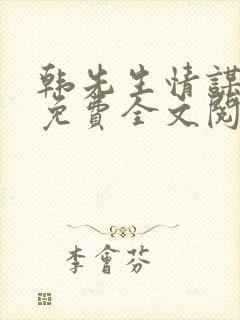 韩先生情謀
免費全文閱
李會芬